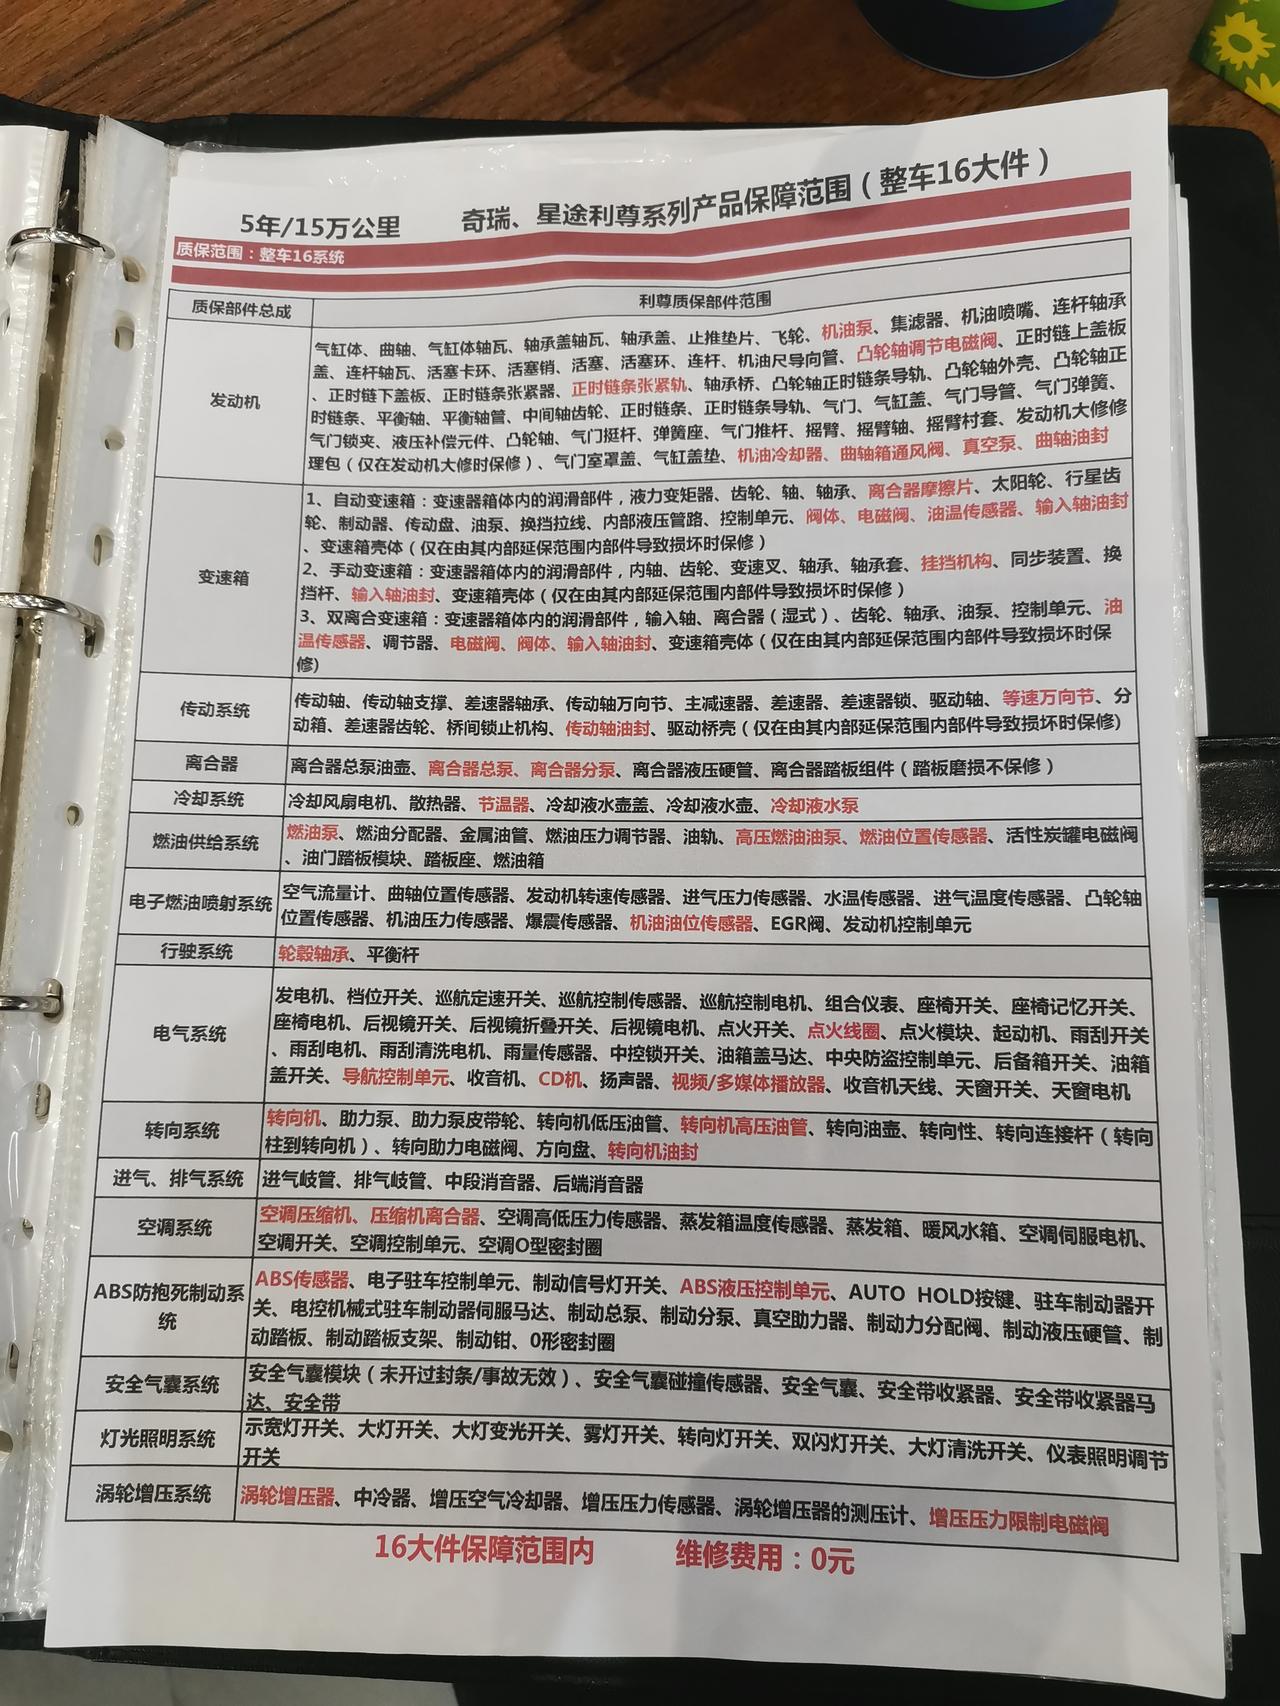 5年/15万公里 奇瑞、星途利尊系列产品保障范围（整车16大件）
质保范围：整车16系统
质保部件总成 利尊质保部件范围
发动机
气缸体、曲轴、气缸体轴瓦、轴承盖轴瓦、轴承盖、止推垫片、飞轮、机油泵、集滤器、机油喷嘴、连杆轴承
盖、连杆轴瓦、活塞卡环、活塞销、活塞、活塞环、连杆、机油尺导向管、凸轮轴调节电磁阀、正时链上盖板
、正时链下盖板、正时链条张紧器、正时链条张紧轨、轴承桥、凸轮轴正时链条导轨、凸轮轴外壳、凸轮轴正
时链条、平衡轴、平衡轴管、中间轴齿轮、正时链条、正时链条导轨、气门、气缸盖、气门导管、气门弹簧、
气门锁夹、液压补偿元件、凸轮轴、气门挺杆、弹簧座、气门推杆、摇臂、摇臂轴、摇臂衬套、发动机大修修
理包（仅在发动机大修时保修）、气门室罩盖、气缸盖垫、机油冷却器、曲轴箱通风阀、真空泵、曲轴油封
变速箱
1、自动变速箱：变速器箱体内的润滑部件，液力变矩器、齿轮、轴、轴承、离合器摩擦片、太阳轮、行星齿
轮、制动器、传动盘、油泵、换挡拉线、内部液压管路、控制单元、阀体、电磁阀、油温传感器、输入轴油封
、变速箱壳体（仅在由其内部延保范围内部件导致损坏时保修）
2、手动变速箱：变速器箱体内的润滑部件，内轴、齿轮、变速叉、轴承、轴承套、挂挡机构、同步装置、换
挡杆、输入轴油封、变速箱壳体（仅在由其内部延保范围内部件导致损坏时保修）
3、双离合变速箱：变速器箱体内的润滑部件，输入轴、离合器（湿式）、齿轮、轴承、油泵、控制单元、油
温传感器、调节器、电磁阀、阀体、输入轴油封、变速箱壳体（仅在由其内部延保范围内部件导致损坏时保
修)
传动系统
传动轴、传动轴支撑、差速器轴承、传动轴万向节、主减速器、差速器、差速器锁、驱动轴、等速万向节、分
动箱、差速器齿轮、桥间锁止机构、传动轴油封、驱动桥壳（仅在由其内部延保范围内部件导致损坏时保修)
离合器
离合器总泵油壶、离合器总泵、离合器分泵、离合器液压硬管、离合器踏板组件（踏板磨损不保修）
冷却系统
冷却风扇电机、散热器、节温器、冷却液水壶盖、冷却液水壶、冷却液水泵
燃油供给系统
燃油泵、燃油分配器、金属油管、燃油压力调节器、油轨、高压燃油油泵、燃油位置传感器、活性炭罐电磁阀
、油门踏板模块、踏板座、燃油箱
电子燃油喷射系统
空气流量计、曲轴位置传感器、发动机转速传感器、进气压力传感器、水温传感器、进气温度传感器、凸轮轴
位置传感器、机油压力传感器、爆震传感器、机油油位传感器、EGR阀、发动机控制单元
行驶系统
轮毂轴承、平衡杆
电气系统
发电机、档位开关、巡航定速开关、巡航控制传感器、巡航控制电机、组合仪表、座椅开关、座椅记忆开关、
座椅电机、后视镜开关、后视镜折叠开关、后视镜电机、点火开关、点火线圈、点火模块、起动机、雨刮开关
、雨刮电机、雨刮清洗电机、雨量传感器、中控锁开关、油箱盖马达、中央防盗控制单元、后备箱开关、油箱
盖开关、导航控制单元、收音机、CD机、扬声器、视频/多媒体播放器、收音机天线、天窗开关、天窗电机
转向系统
转向机、助力泵、助力泵皮带轮、转向机低压油管、转向机高压油管、转向油壶、转向性、转向连接杆（转向
柱到转向机）、转向助力电磁阀、方向盘、转向机油封
进气、排气系统
进气歧管、排气歧管、中段消音器、后端消音器
空调系统
空调压缩机、压缩机离合器、空调高低压力传感器、蒸发箱温度传感器、蒸发箱、暖风水箱、空调伺服电机、
空调开关、空调控制单元、空调O型密封圈
ABS防抱死制动系
统
ABS传感器、电子驻车控制单元、制动信号灯开关、ABS液压控制单元、AUTO HOLD按键、驻车制动器开
关、电控机械式驻车制动器伺服马达、制动总泵、制动分泵、真空助力器、制动力分配阀、制动液压硬管、制
动踏板、制动踏板支架、制动钳、0形密封圈
安全气囊系统
安全气囊模块（未开过封条/事故无效）、安全气囊碰撞传感器、安全气囊、安全带收紧器、安全带收紧器马
达、安全带
灯光照明系统
示宽灯开关、大灯开关、大灯变光开关、雾灯开关、转向灯开关、双闪灯开关、大灯清洗开关、仪表照明调节
开关
涡轮增压系统
涡轮增压器、中冷器、增压空气冷却器、增压压力传感器、涡轮增压器的测压计、增压压力限制电磁阀
16大件保障范围内 维修费用：0元